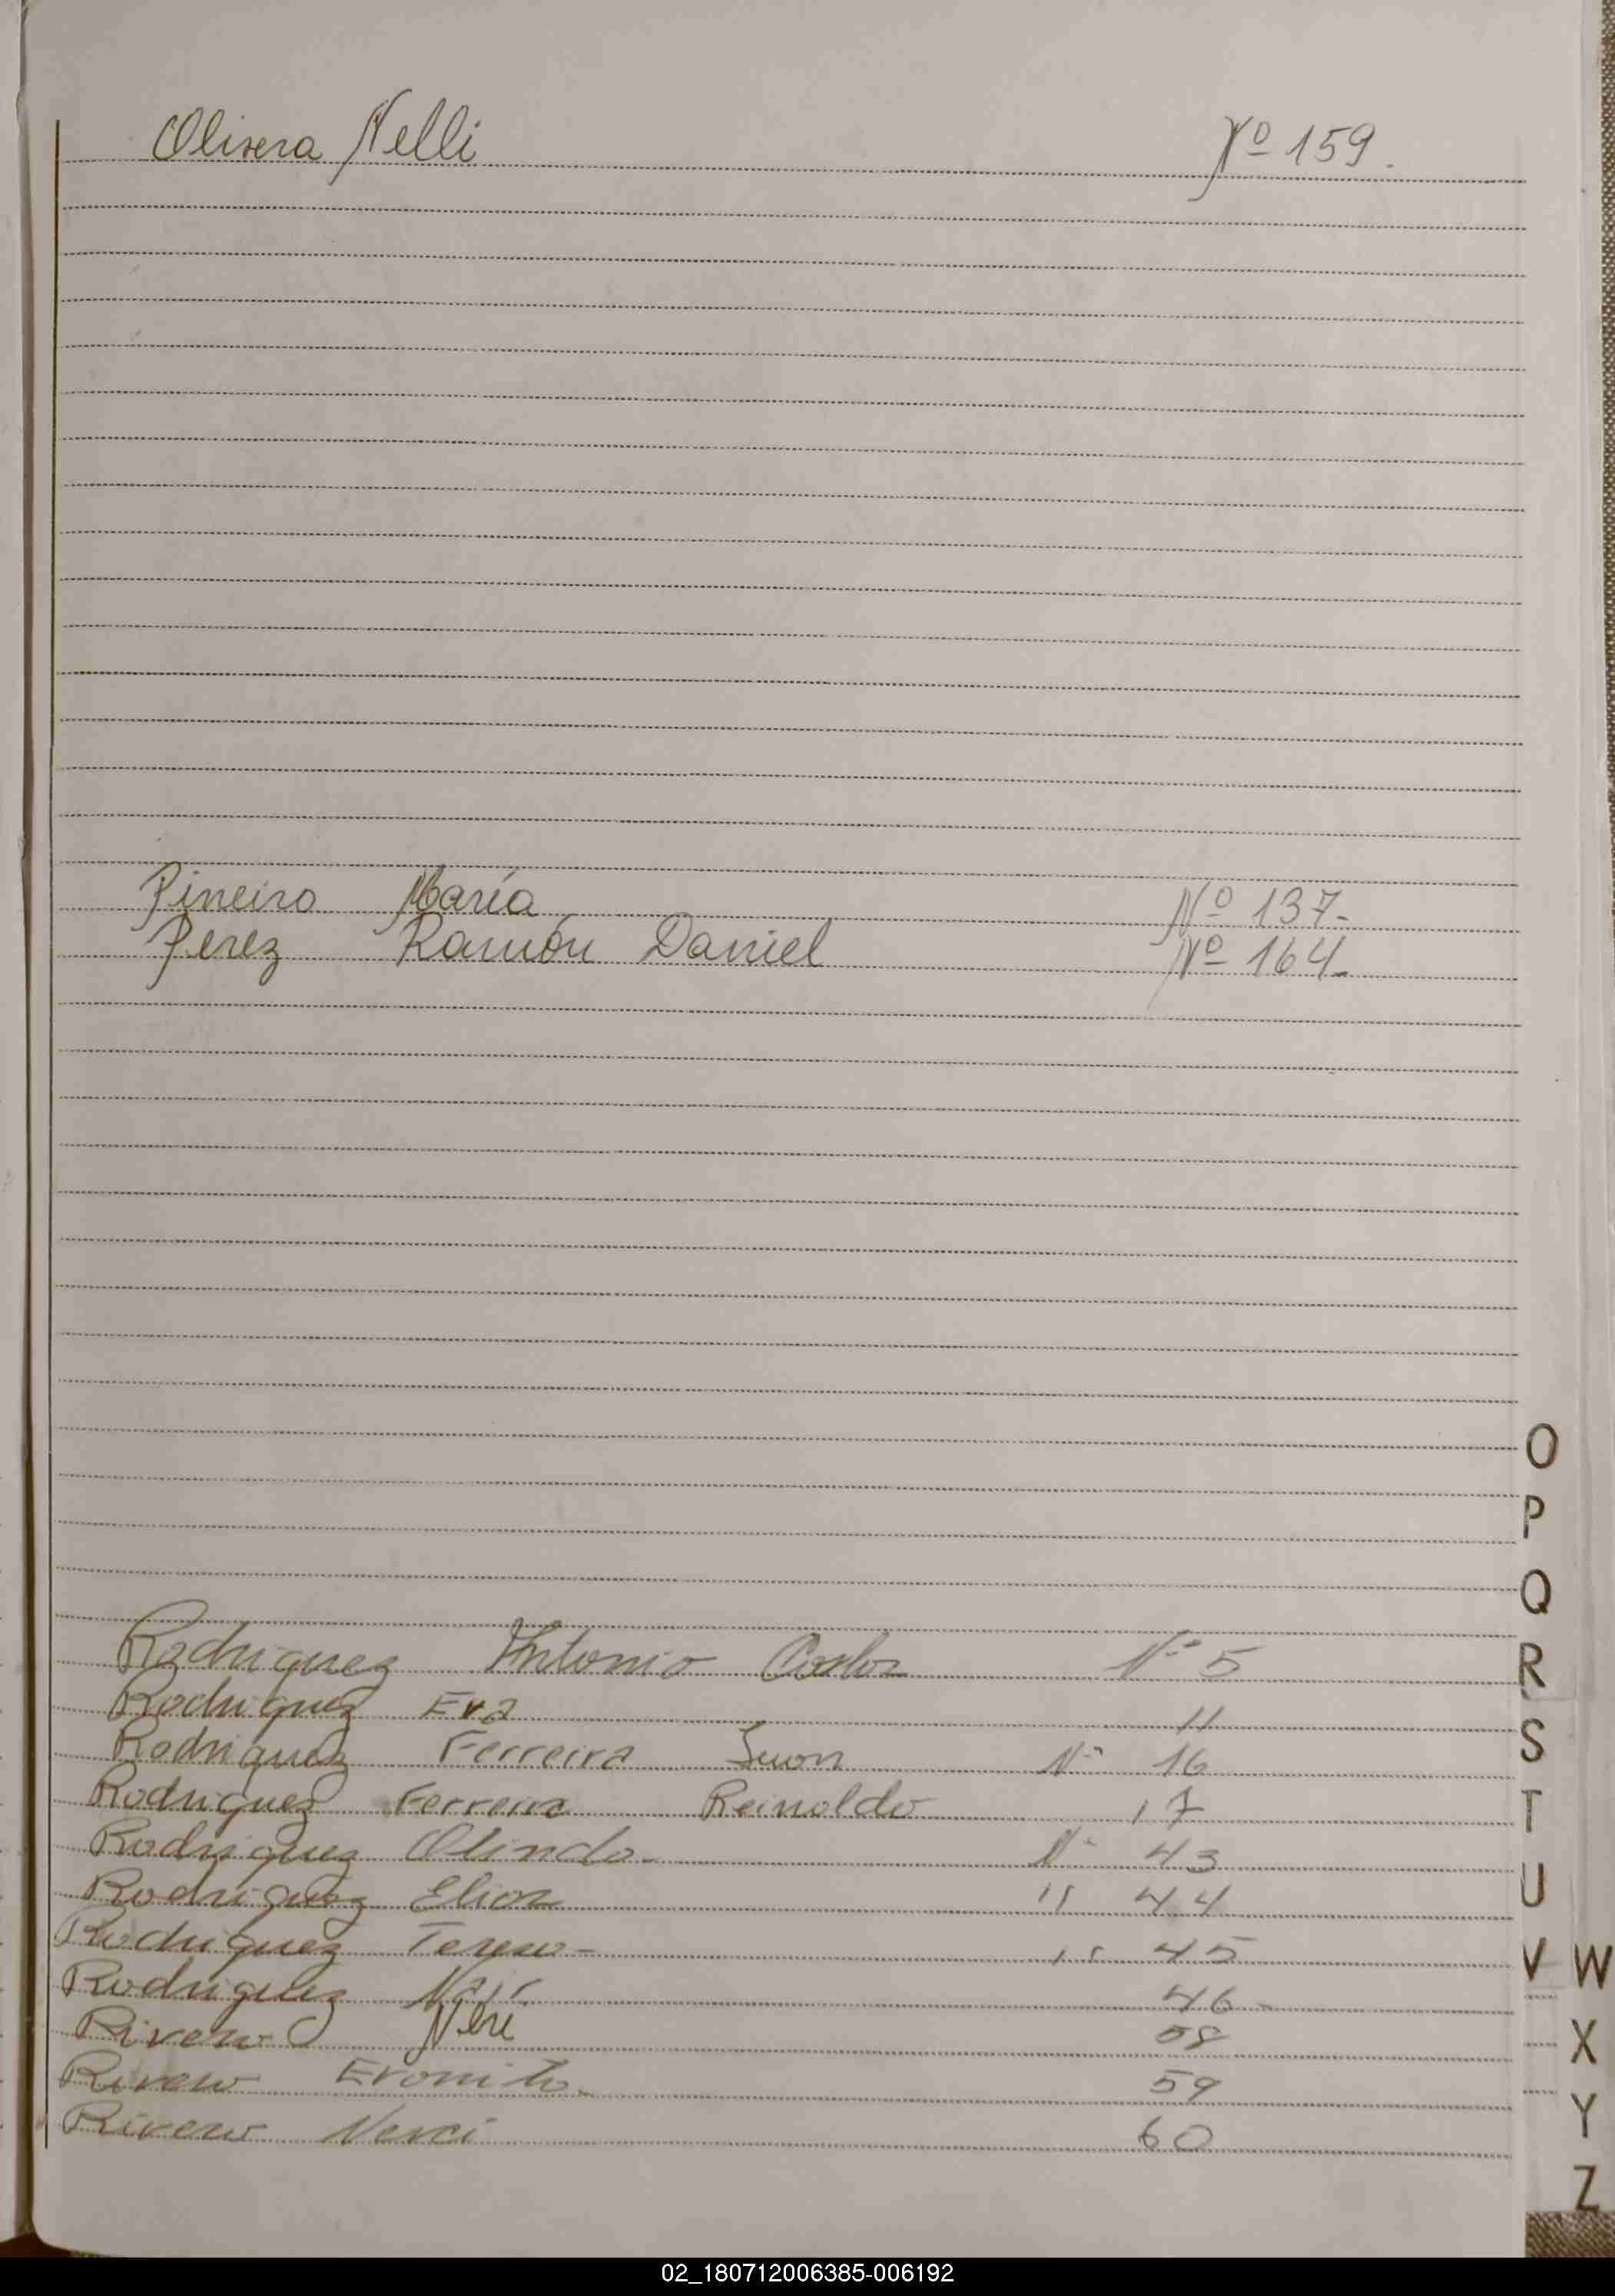 Olivera Nelli Nº 159.
Pineiro María Nº 137.
Perez Ramón Daniel Nº 164.
Rodriguez Antonio Carlos Nº 5
Rodriguez Eva 11
Rodriguez Ferreira Juan Nº 16
Rodriguez Ferreira Reinoldo 17
Rodriguez Olindo Nº 43
Rodriguez Elioz " 44
Rodriguez " 45
Rodriguez 46
Rivero Neri 58
Rivero 59
Rivero Nerci 60
O
P
Q
R
S
T
U
V W
X
Y
Z
02_180712006385-006192